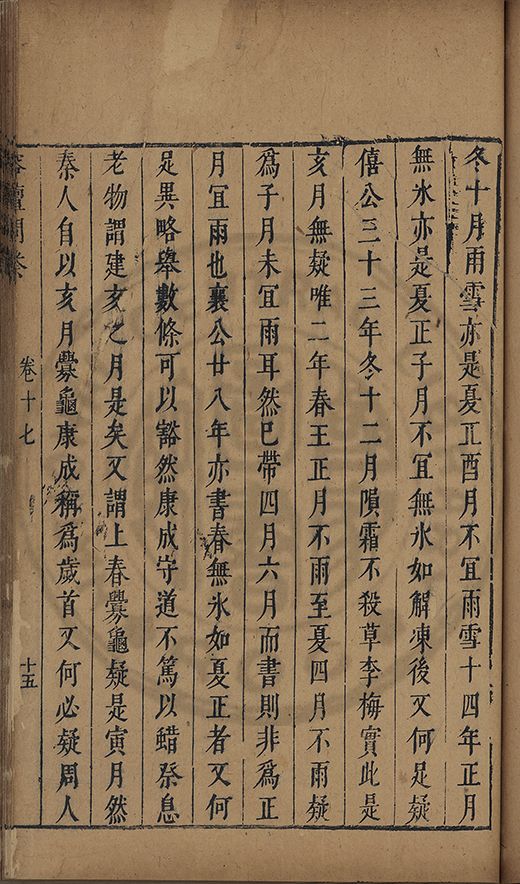 冬十月雨雪亦是夏正酉月不宜雨雪十四年正月
無氷亦是夏正子月不宜無氷如解凍後又何足疑
僖公三十三年冬十二月隕霜不殺草李梅實此是
亥月無疑唯二年春王正月不雨至夏四月不雨疑
爲子月未宜雨耳然巳帶四月六月而書則非爲正
月宜雨也襄公廿八年亦書春無氷如夏正者又何
足異略舉數條可以豁然康成守道不篤以蜡祭息
老物謂建亥之月是矣又謂上春釁龜疑是寅月然
秦人自以亥月釁龜康成稱爲歲首又何必疑周人
卷十七
十五